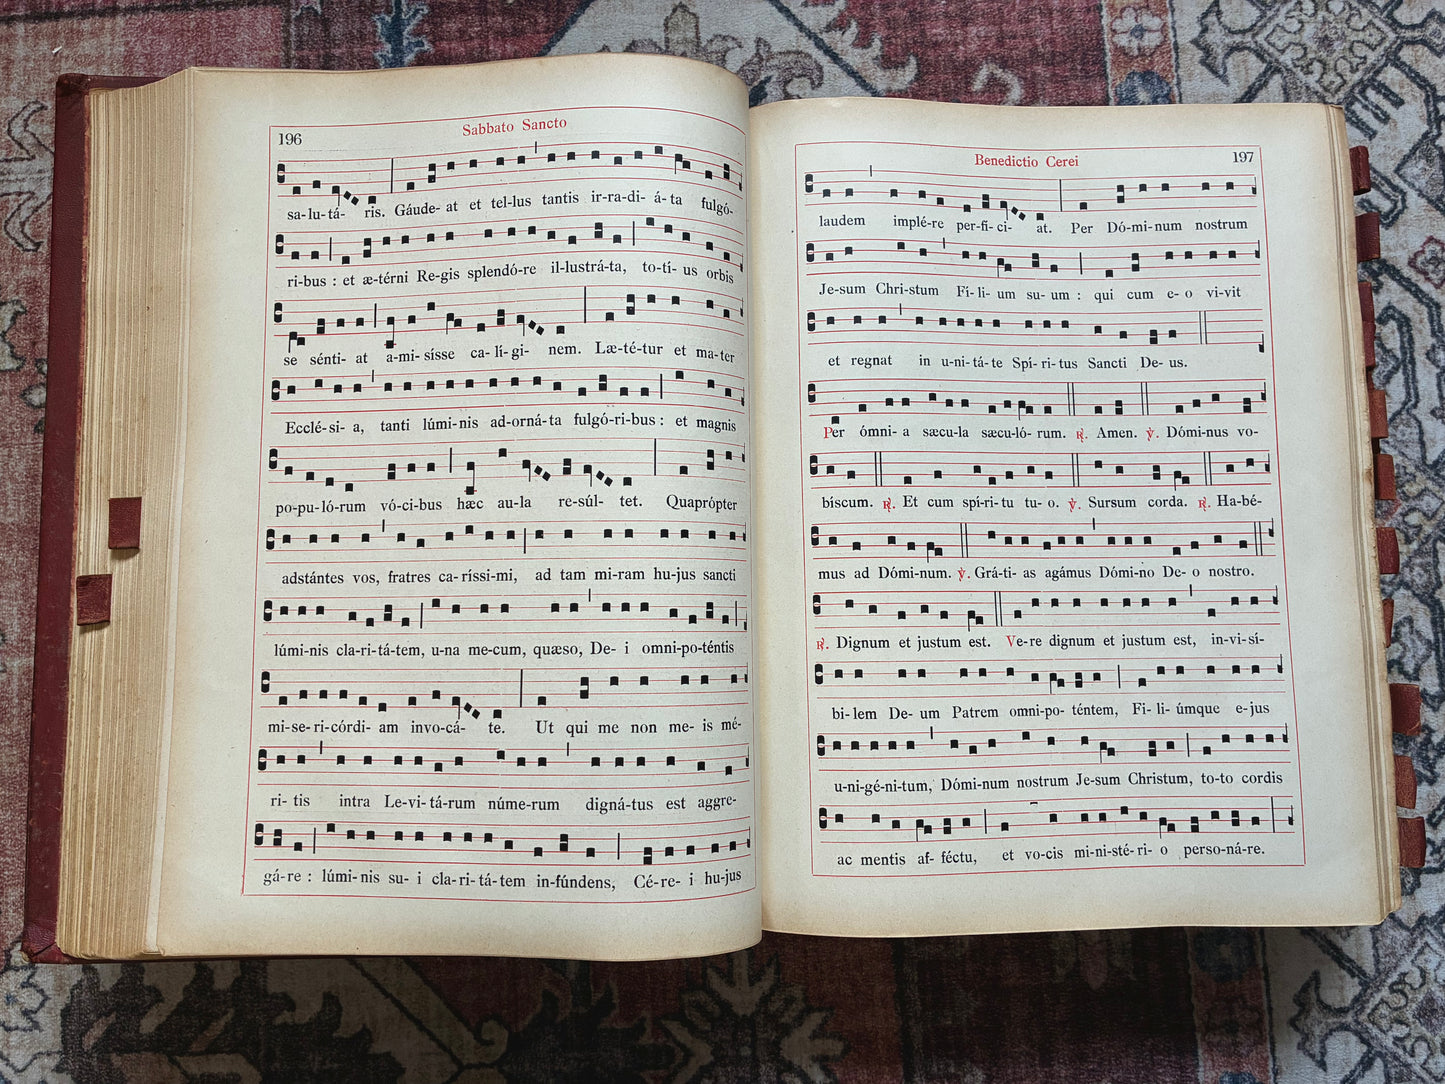 196
Sabbato Sancto
sa-lu-tá- ris. Gáude- at et tel-lus tantis ir-ra-di- á-ta fulgó-
ri-bus : et æ-térni Re-gis splendó-re il-lustrá-ta, to-tí- us orbis
se sénti- at a-mi-sísse ca-lí-gi- nem. Læ-té-tur et ma-ter
Ecclé-si- a, tanti lúmi-nis ad-orná-ta fulgó-ri-bus : et magnis
po-pu-ló-rum vó-ci-bus hæc au-la re-súl- tet. Quaprópter
adstántes vos, fratres ca-ríssi-mi, ad tam mi-ram hu-jus sancti
lúmi-nis cla-ri-tá-tem, u-na me-cum, quæso, De- i omni-po-téntis
mi-se-ri-córdi- am invo-cá- te. Ut qui me non me- is mé-
ri- tis intra Le-vi-tá-rum núme-rum digná-tus est aggre-
gá-re : lúmi-nis su- i cla-ri-tá-tem in-fúndens, Cé-re- i hu-jus
Benedictio Cerei
197
laudem implé-re per-fí-ci- at. Per Dó-mi-num nostrum
Je-sum Chri-stum Fí-li- um su-um : qui cum e-o vi-vit
et regnat in u-ni-tá-te Spí-ri-tus Sancti De- us.
Per ómni- a sæcu-la sæcu-ló-rum. ℟. Amen. ℣. Dómi-nus vo-
bíscum. ℟. Et cum spí-ri-tu tu- o. ℣. Sursum corda. ℟. Ha-bé-
mus ad Dómi-num. ℣. Grá-ti- as agámus Dómi-no De- o nostro.
℟. Dignum et justum est. Ve-re dignum et justum est, in-vi-sí-
bi-lem De- um Patrem omni-po-téntem, Fí-li- úmque e-jus
u-ni-gé-ni-tum, Dómi-num nostrum Je-sum Christum, to-to cordis
ac mentis af-féctu, et vo-cis mi-ni-sté-ri- o perso-ná-re.